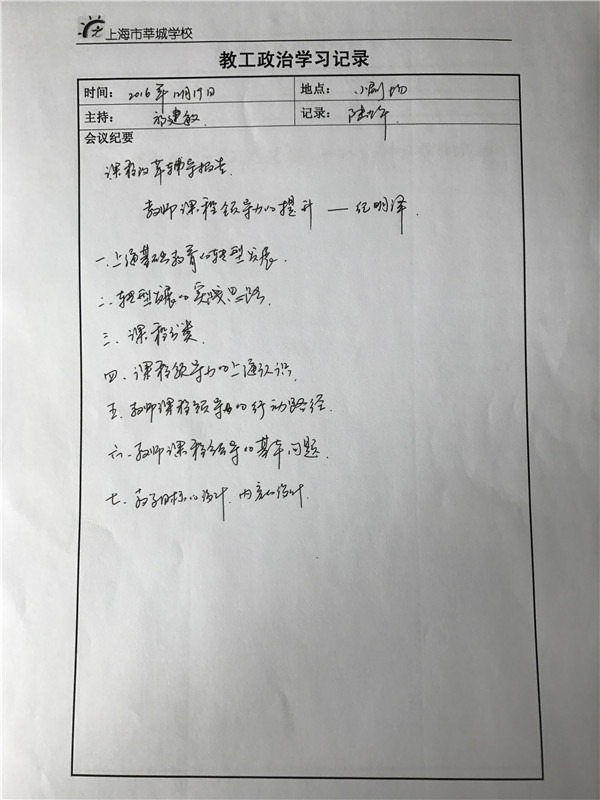 上海市莘城学校
教工政治学习记录
时间： 2016年12月19日 地点： 小剧场
主持： 祁建敏 记录：
会议纪要
课程改革辅导报告.
教师课程领导力的提升 — 纪明泽.
一.上海基础教育的转型发展.
二.转型发展的实践思路.
三.课程分类.
四、课程领导力的上海认识.
五.教师课程领导力的行动路径.
六.教师课程领导的基本问题.
七.教学目标的设计.内容的设计.